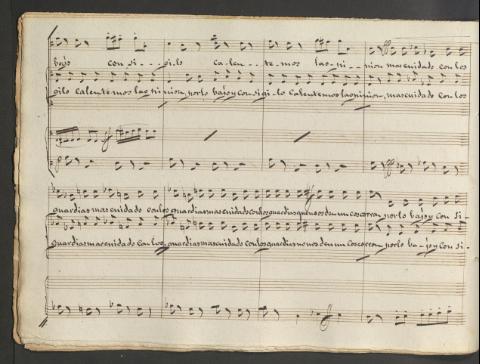 bajo con si - - gi - lo ca - len - te - mos la o - pi - nion mas cuidado con los
gilo calentemos la opinion, por lo bajo y con sigilo calentemos la opinion, mas cuidado con los
guardias mas cuidado con los guardias mas cuidado con los guardias que nos den un coscorron por lo bajo y con si -
guardias mas cuidado con los guardias mas cuidado con los guardias no nos den un coscorron por lo ba - jo y con si -